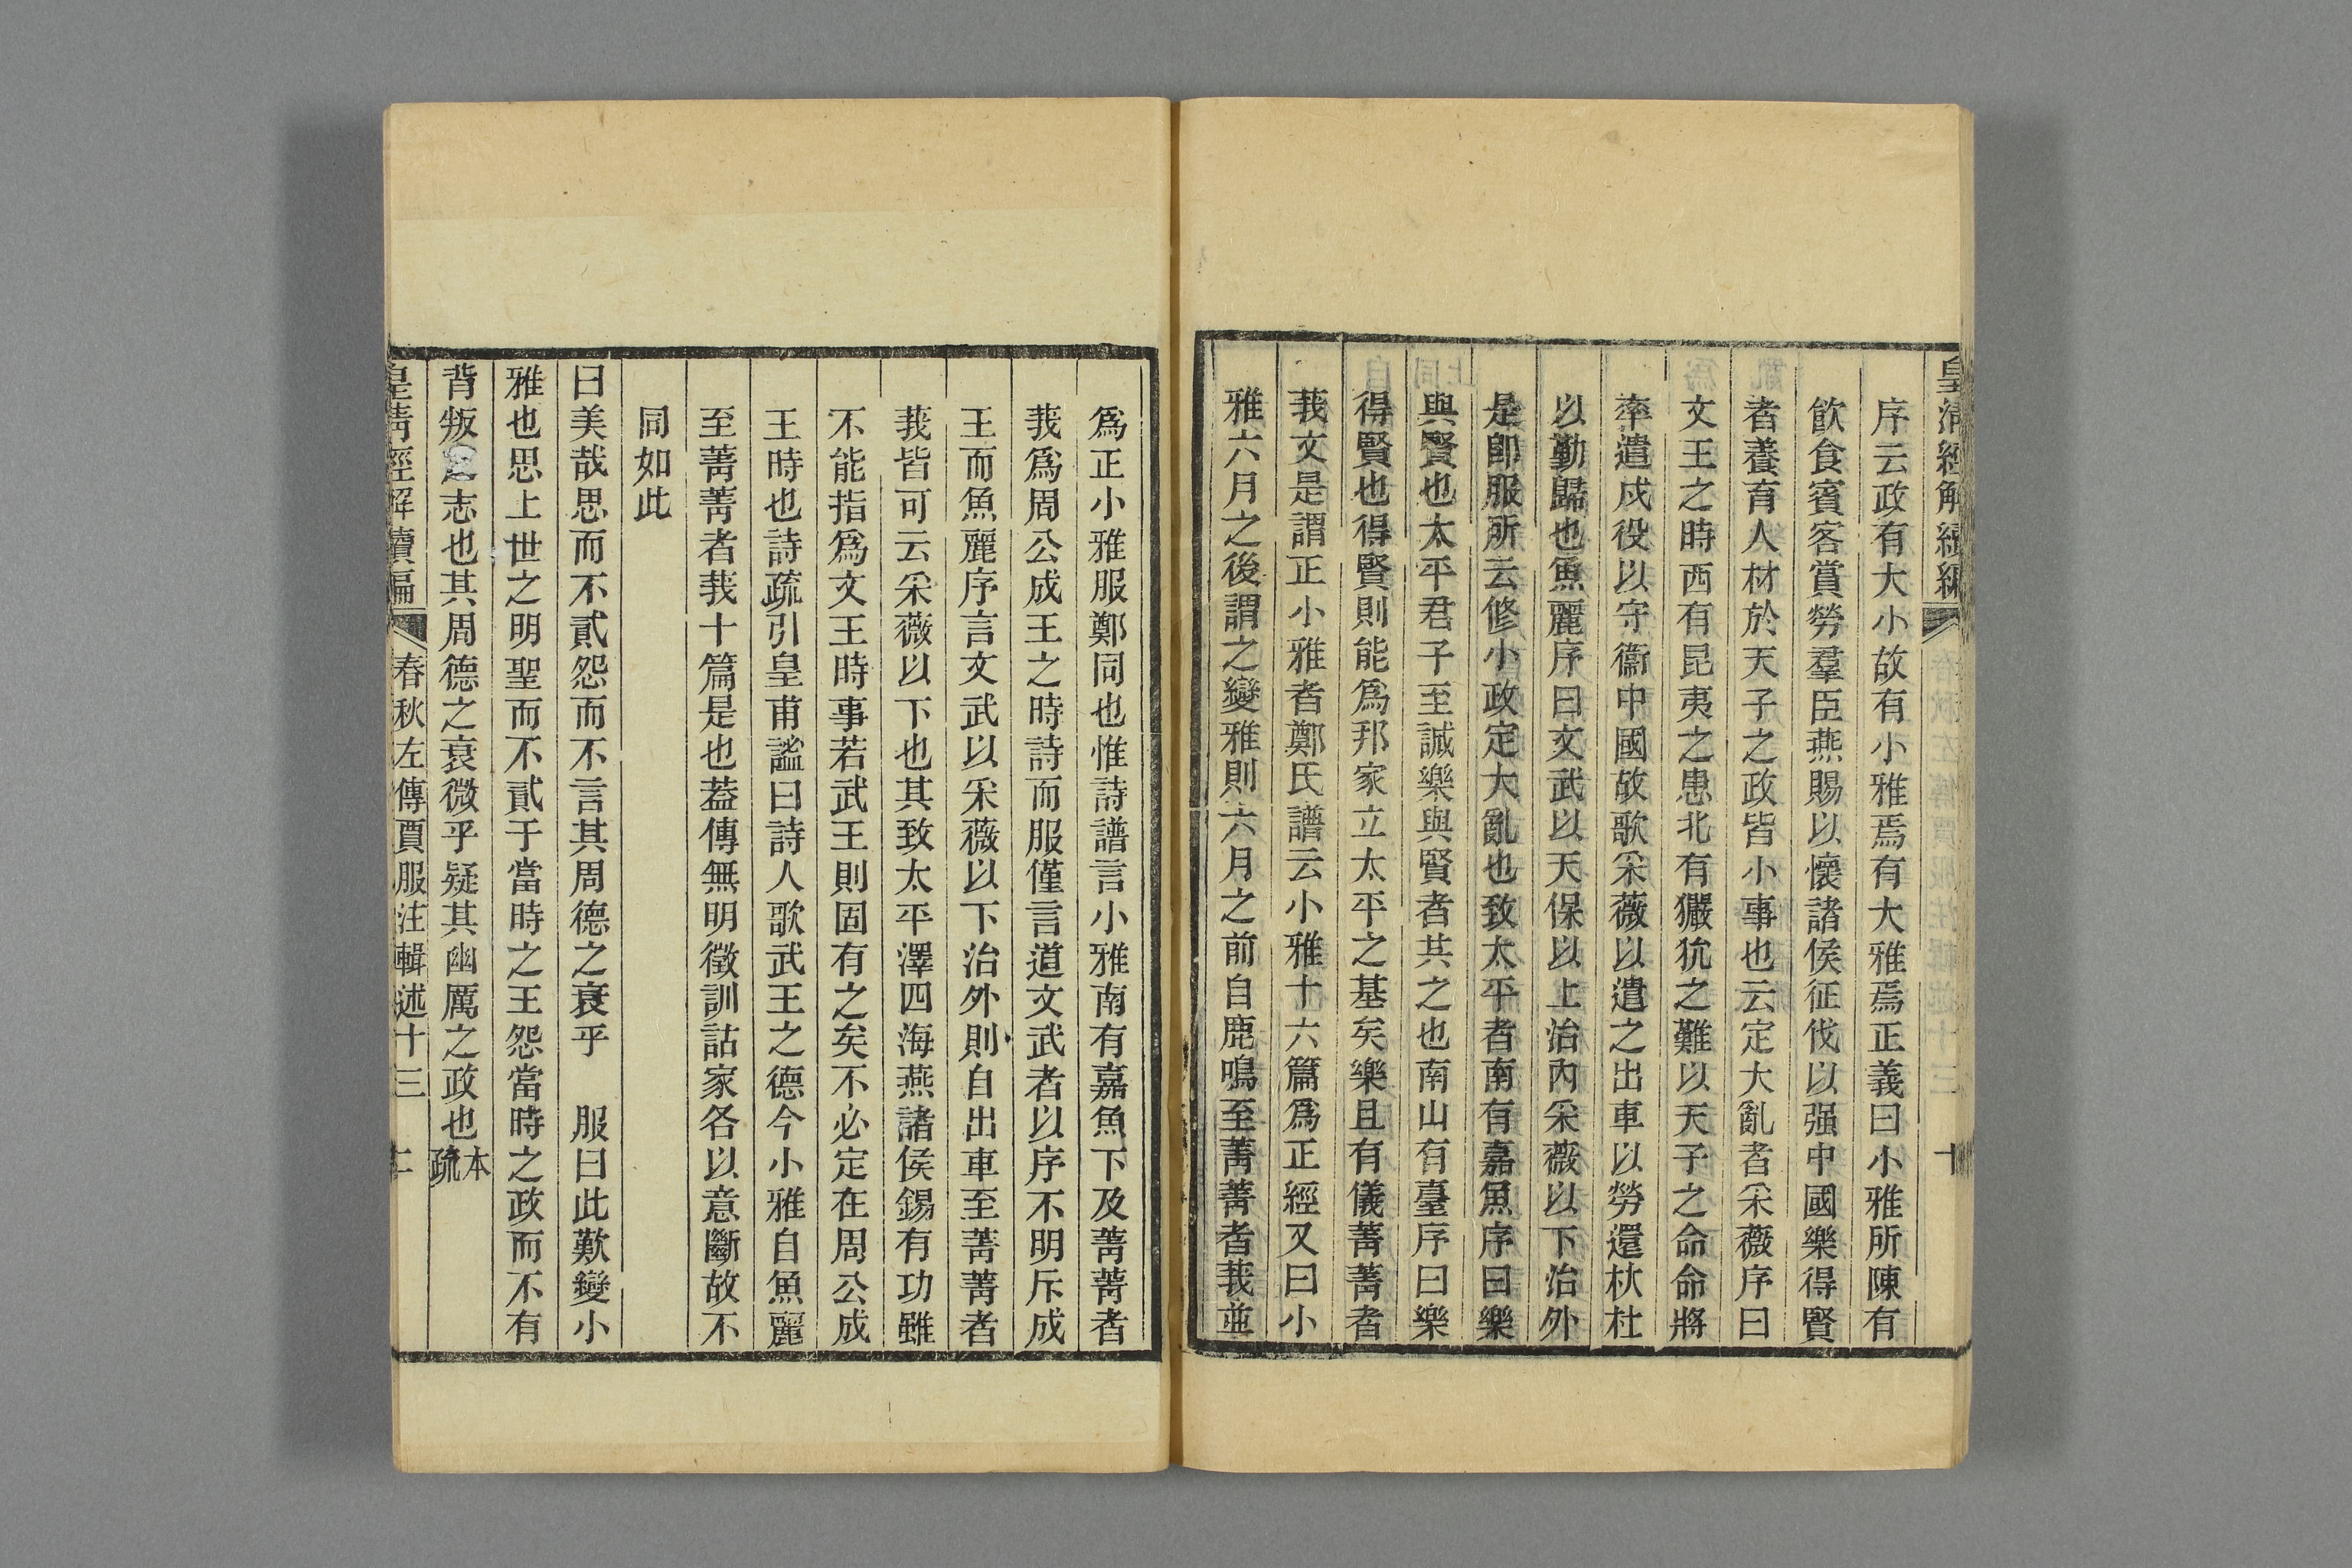 皇清經解續編 十
序云政有大小故有小雅焉有大雅焉正義曰小雅所陳有
飲食賓客賞勞羣臣燕賜以懷諸侯征伐以强中國樂得賢
者養育人材於天子之政皆小事也云定大亂者采薇序曰
文王之時西有昆夷之患北有玁狁之難以天子之命命將
率遣戍役以守衞中國故歌采薇以遣之出車以勞還杕杜
以勤歸也魚麗序曰文武以天保以上治內采薇以下治外
是卽服所云修小政定大亂也致太平者南有嘉魚序曰樂
與賢也太平君子至誠樂與賢者共之也南山有臺序曰樂
得賢也得賢則能爲邦家立太平之基矣樂且有儀菁菁者
莪文是謂正小雅者鄭氏譜云小雅十六篇爲正經又曰小
雅六月之後謂之變雅則六月之前自鹿鳴至菁菁者莪並
爲正小雅服鄭同也惟詩譜言小雅南有嘉魚下及菁菁者
莪爲周公成王之時詩而服僅言道文武者以序不明斥成
王而魚麗序言文武以采薇以下治外則自出車至菁菁者
莪皆可云采薇以下也其致太平澤四海燕諸侯錫有功雖
不能指爲文王時事若武王則固有之矣不必定在周公成
王時也詩疏引皇甫謐曰詩人歌武王之德今小雅自魚麗
至菁菁者莪十篇是也葢傳無明徵訓詁家各以意斷故不
同如此
曰美哉思而不貳怨而不言其周德之衰乎 服曰此歎變小
雅也思上世之明聖而不貳于當時之王怨當時之政而不有
背叛志也其周德之衰微乎疑其幽厲之政也本疏
皇清經解續編 春秋左傳賈服注輯述十三